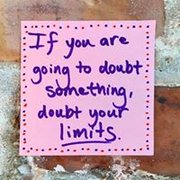 If you are
going to doubt
something,
doubt your
limits.